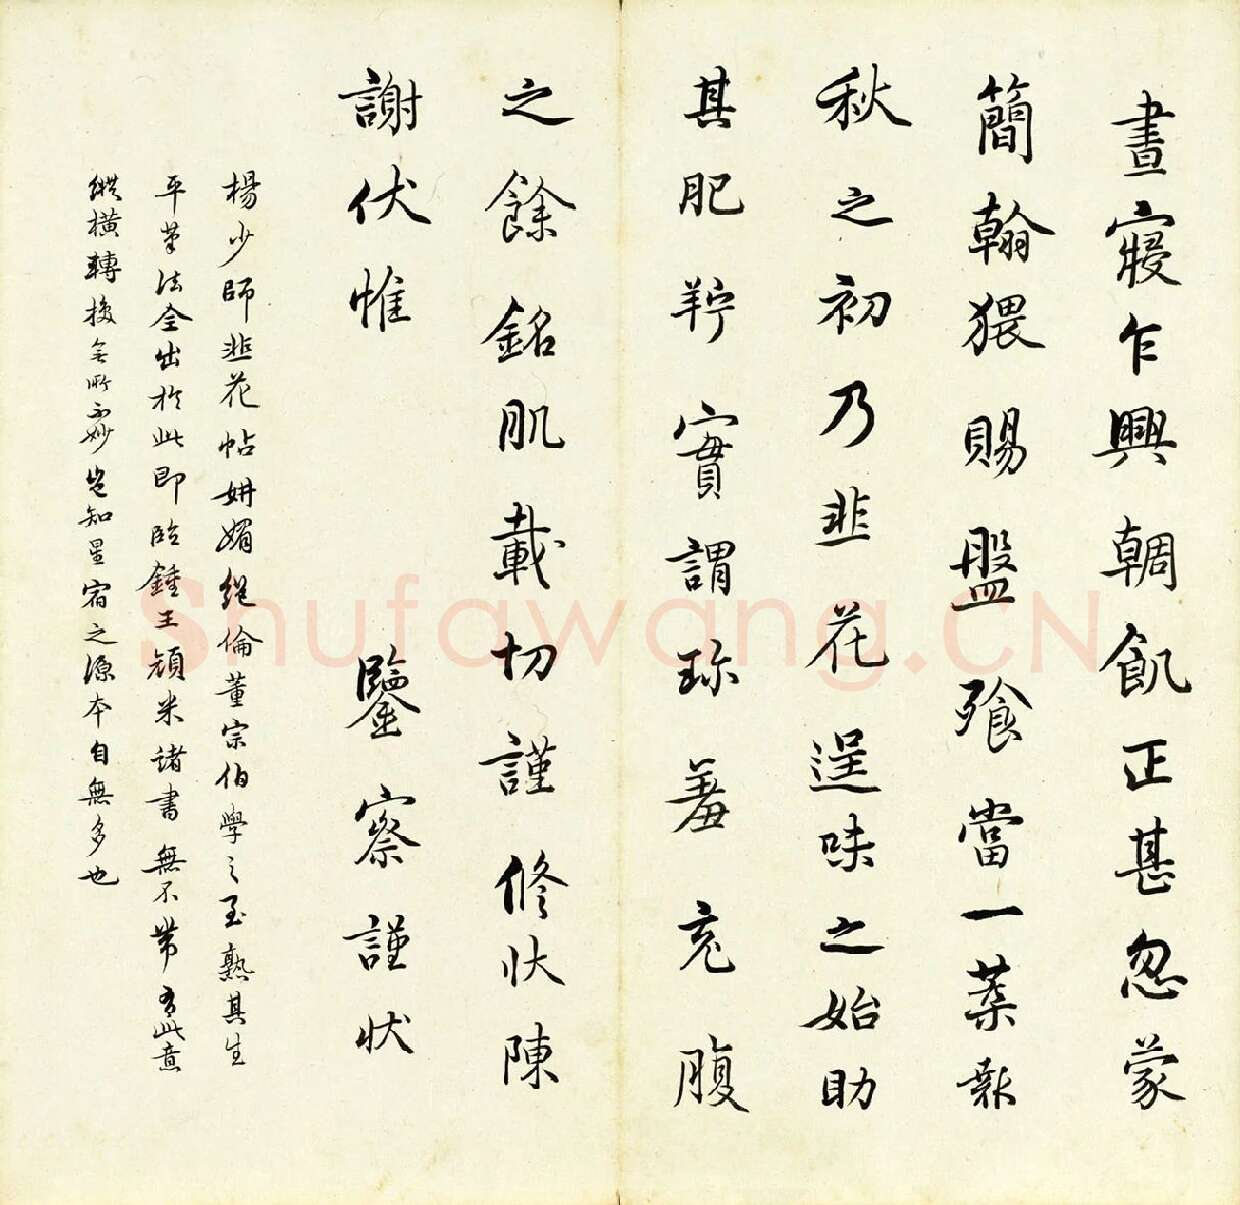 晝寢乍興輖飢正甚忽蒙
簡翰猥賜盤飱當一葉報
秋之初乃韭花逞味之始助
其肥羜實謂珍羞充腹
之餘銘肌載切謹修狀陳
謝伏惟 鑒察謹狀
楊少師韭花帖妍媚絕倫董宗伯學之至熟其生
平筆法全出於此即臨鍾王顏米諸書無不帶有此意
縱橫轉換無所不妙豈知星宿之源本自無多也
Shufawang.CN